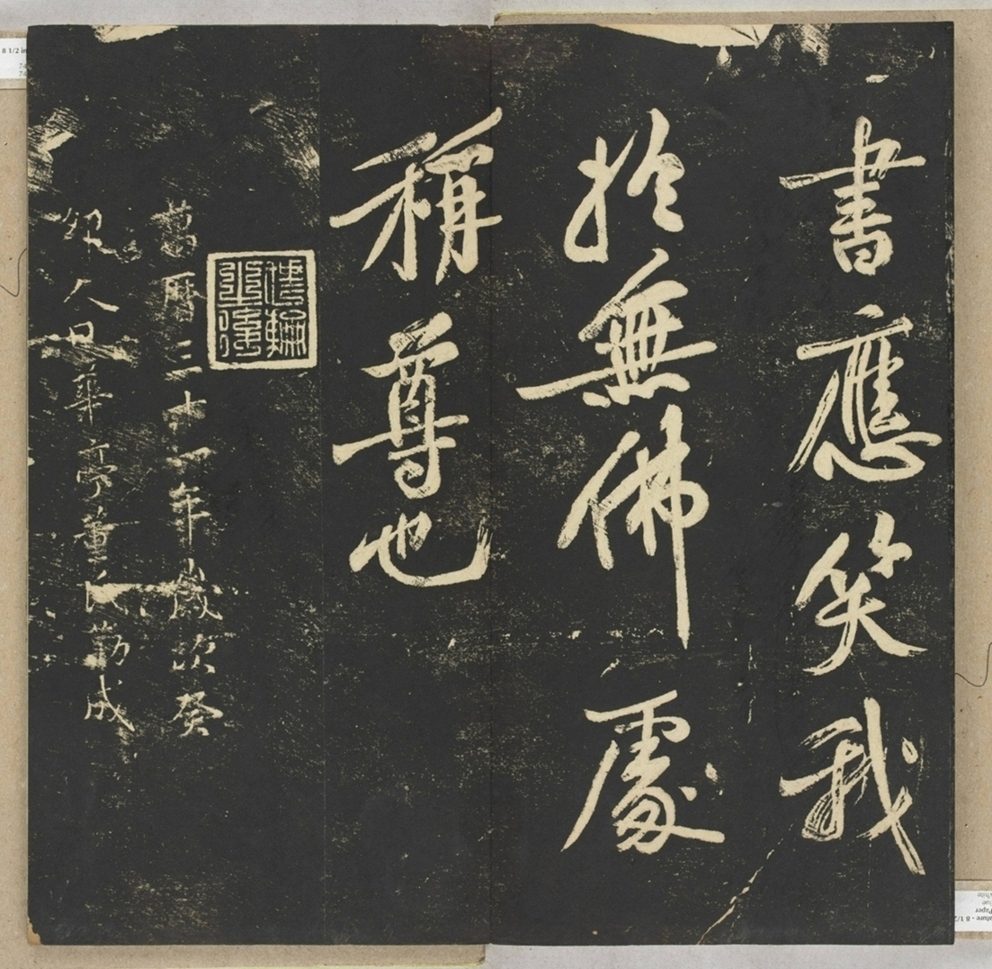 書應笑我
於無佛處
稱尊也
萬曆三十一年歲次癸
卯人日華亭董氏勒成